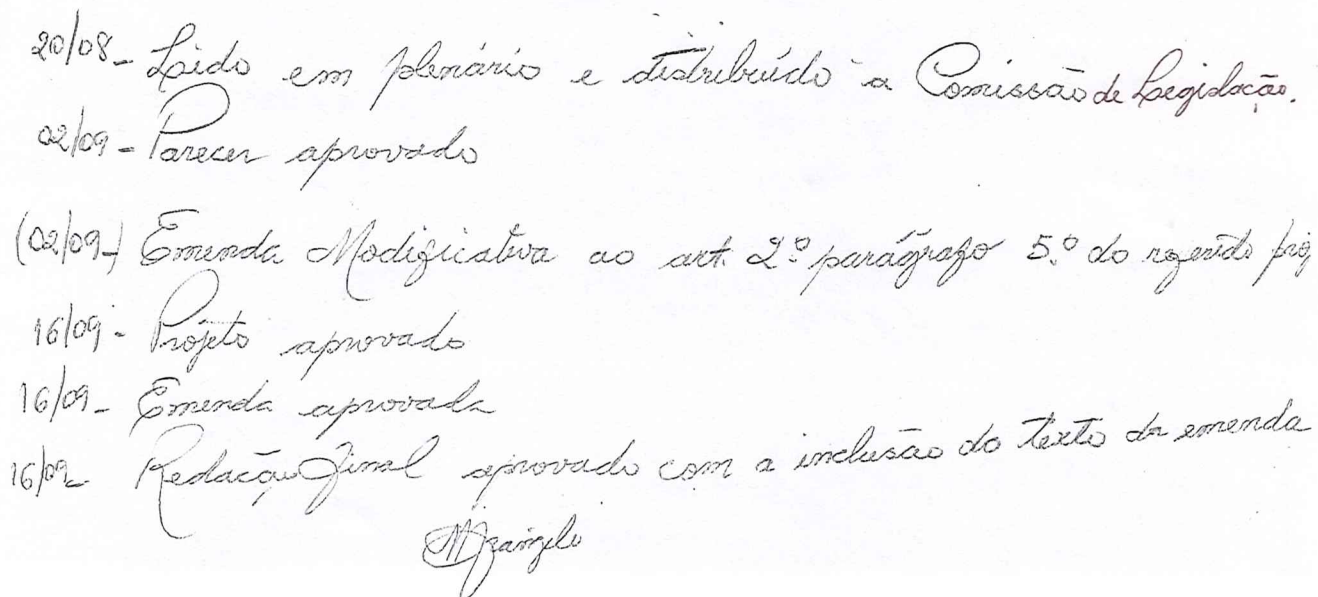 20/08 - Lido em plenário e distribuído a Comissão de Legislação.
02/09 - Parecer aprovado
(02/09-) Emenda Modificativa ao art. 2º parágrafo 5.º do referido proj
16/09 - Projeto aprovado
16/09 - Emenda aprovada
16/09 - Redação Final aprovado com a inclusão do texto da emenda